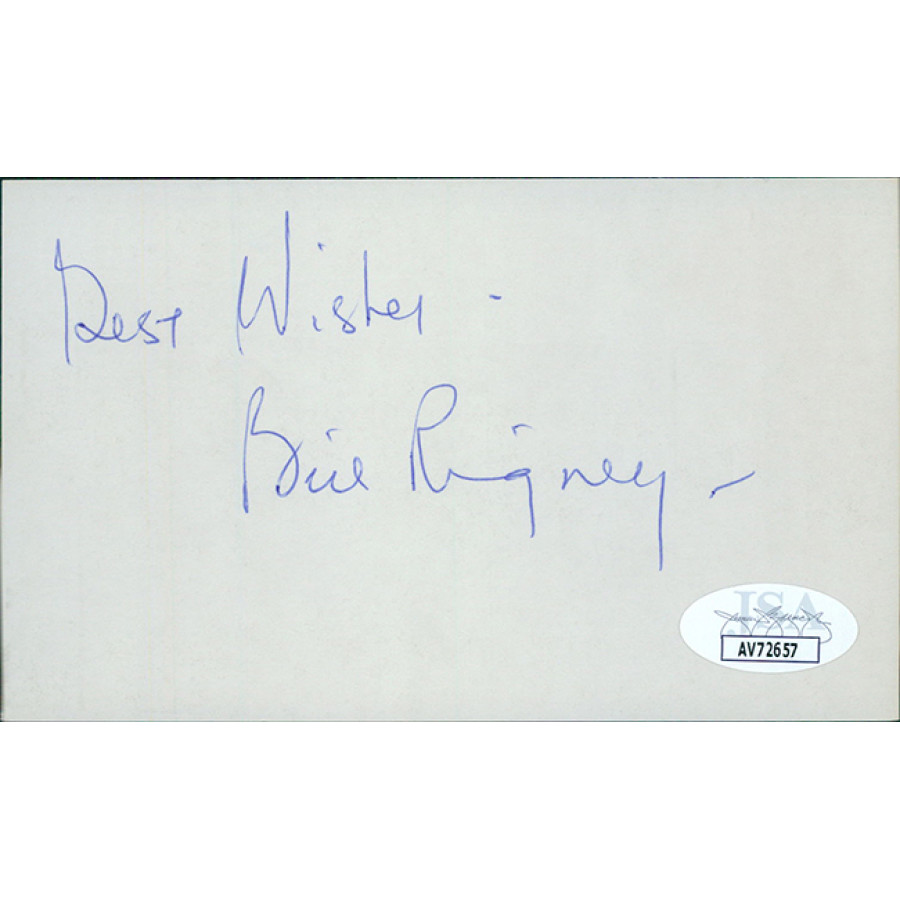 Best Wishes -
Bill Rigney -
JSA
AV72657